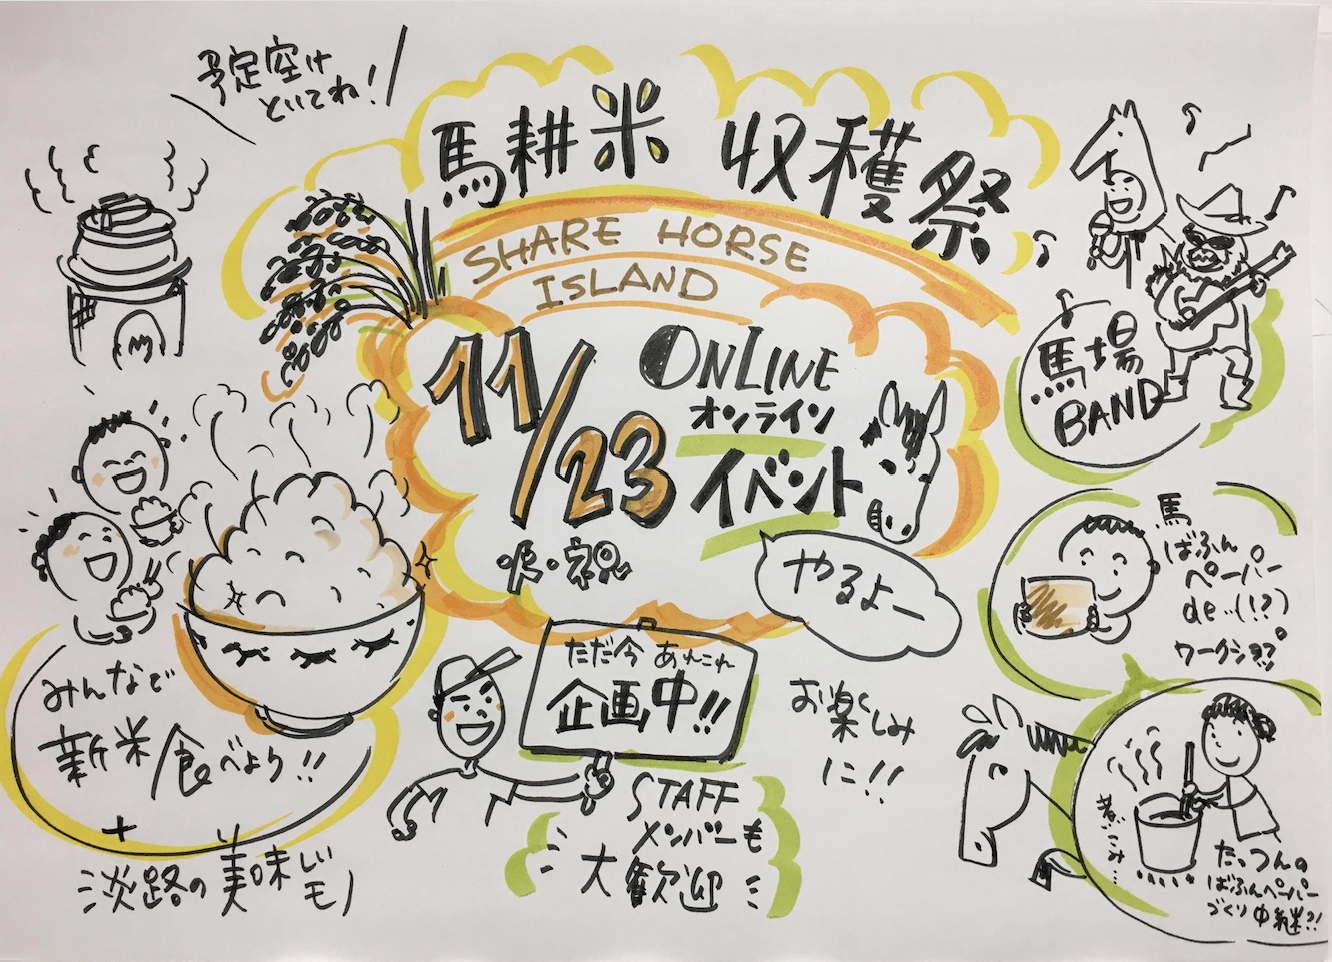 予定空け
といてね!
馬耕米 収穫祭
SHARE HORSE
ISLAND
11/23
ONLINE
オンライン
イベント
やるよー
馬場
BAND
馬
ばふん
ペーパー
de…(!?)
ワークショップ?
みんなで
新米食べよう!!
+
淡路の美味しいモノ
ただ今 あれこれ
企画中!!
お楽しみ
に!!
STAFF
メンバーも
大歓迎
煮こみ…
たっつんの
ばふんペーパー
づくり中継?!